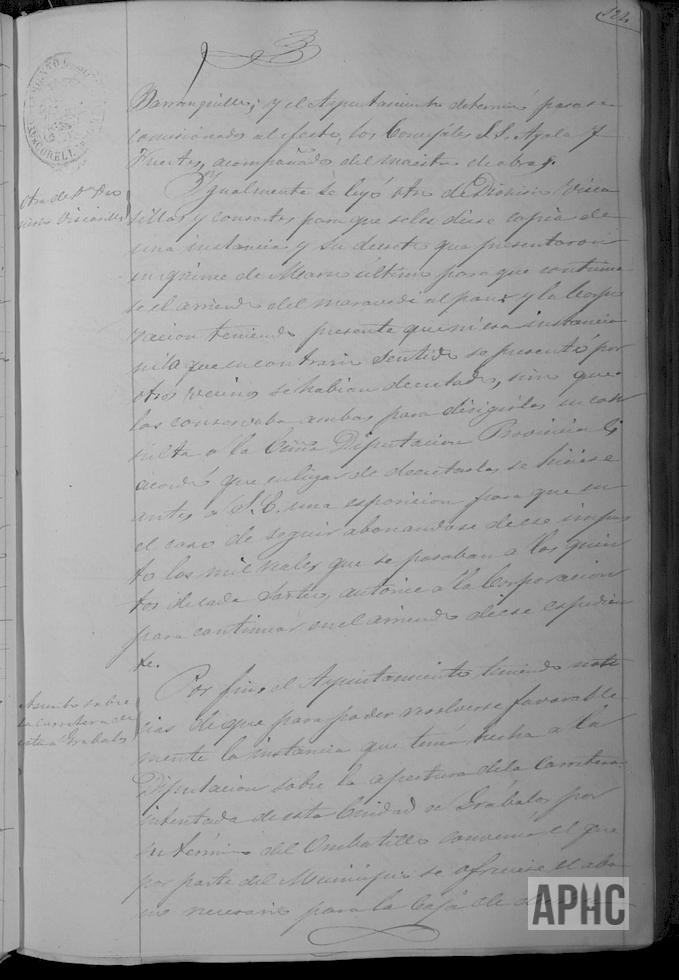 124
Barranquillo; y el Ayuntamiento determinó pasase
comisionados al efecto, los Concejales S.S. Ayala y
Fuertes, acompañados del maestro de obras.
Otra de Dn Dio
nisio Viscasillas
Ygualmente se leyó otra de Dionisio Visca
sillas y consortes para que se les diese copia de
una instancia y su decreto que presentaron
en quince de Marzo último para que continua
se el arriendo del maravedí al pan; y la Corpo
racion teniendo presente que ni esa instancia
ni la que en contrario sentido se presentó por
otros vecinos se habian decretado, sino que
las conservaba ambas para dirigirlas en con
sulta á la Diputacion Provincial
acordó que en lugar de decretarlas se hiciese
antes á S.E. una esposicion para que en
el caso de seguir abonandose de ese impues
to los mil reales que se pasaban a los quin
tos de cada sorteo, autorice a la Corporacion
para continuar en el arriendo de ese espedien
te.
Asunto sobre
la carretera de
esta á Grabalos
Por fin, el Ayuntamiento teniendo noti
cias de que para poder resolverse favorable
mente la instancia que tenia hecha a la
Diputacion sobre la apertura de la Carretera
intentada de esta Ciudad a Grábalos por
su término del Ombatillo convenia el que
por parte del Municipio se ofreciese el abo
no necesario para la Caja de
APHC